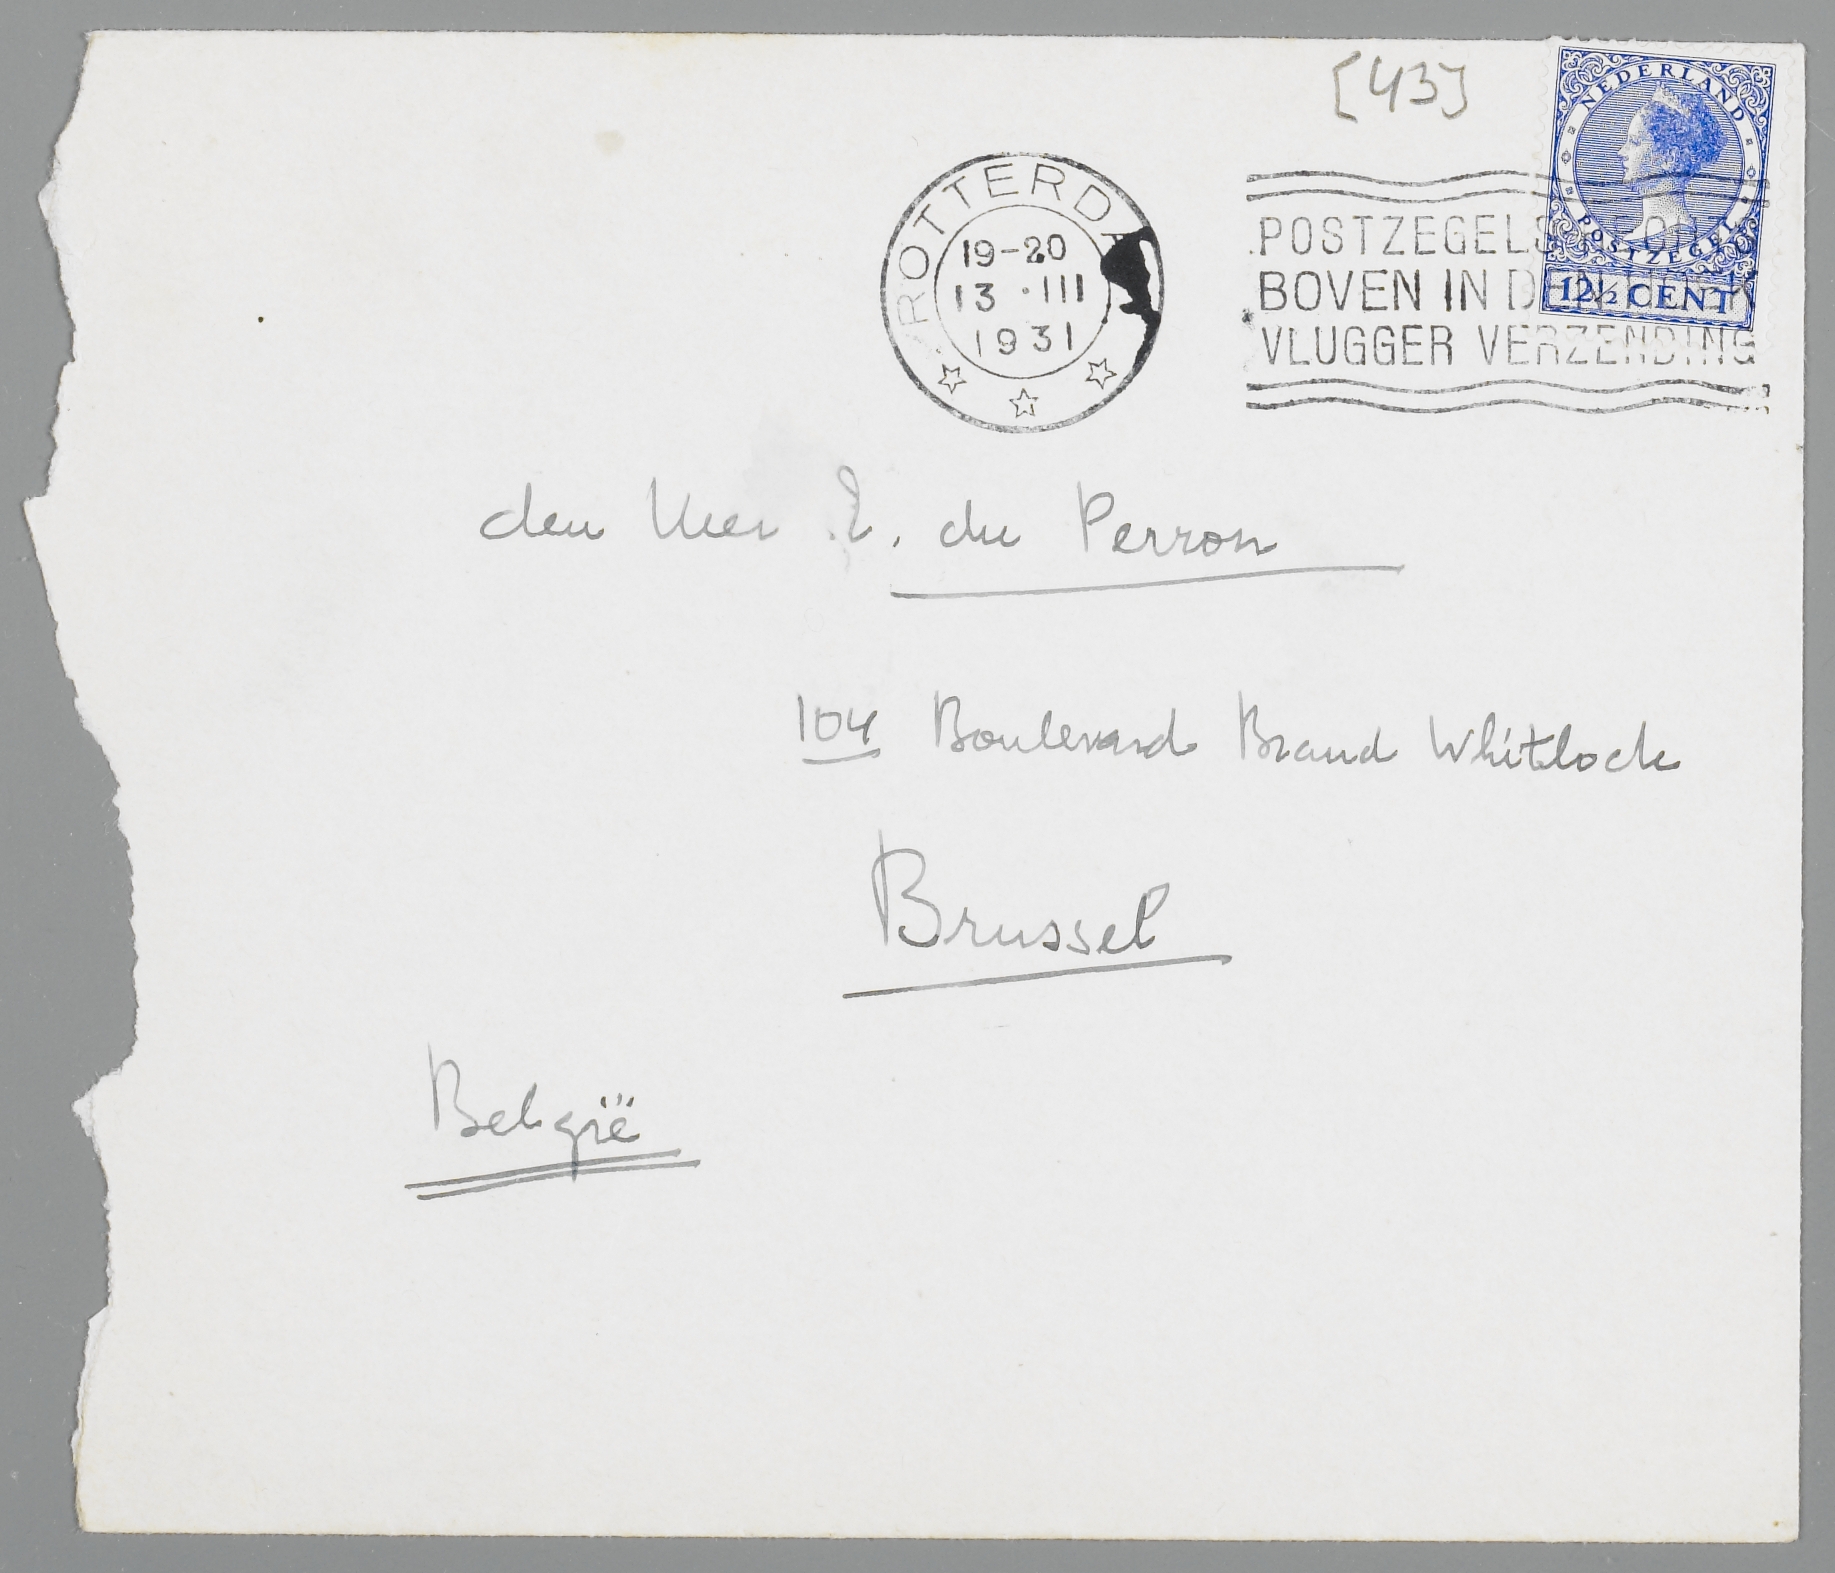 [43]
NEDERLAND
POSTZEGEL
12½ CENT
ROTTERDA
19-20
13 · III
1931
POSTZEGELS
BOVEN IN DEN HOEK
VLUGGER VERZENDING
den Heer E. du Perron
104 Boulevard Brand Whitlock
Brussel
België